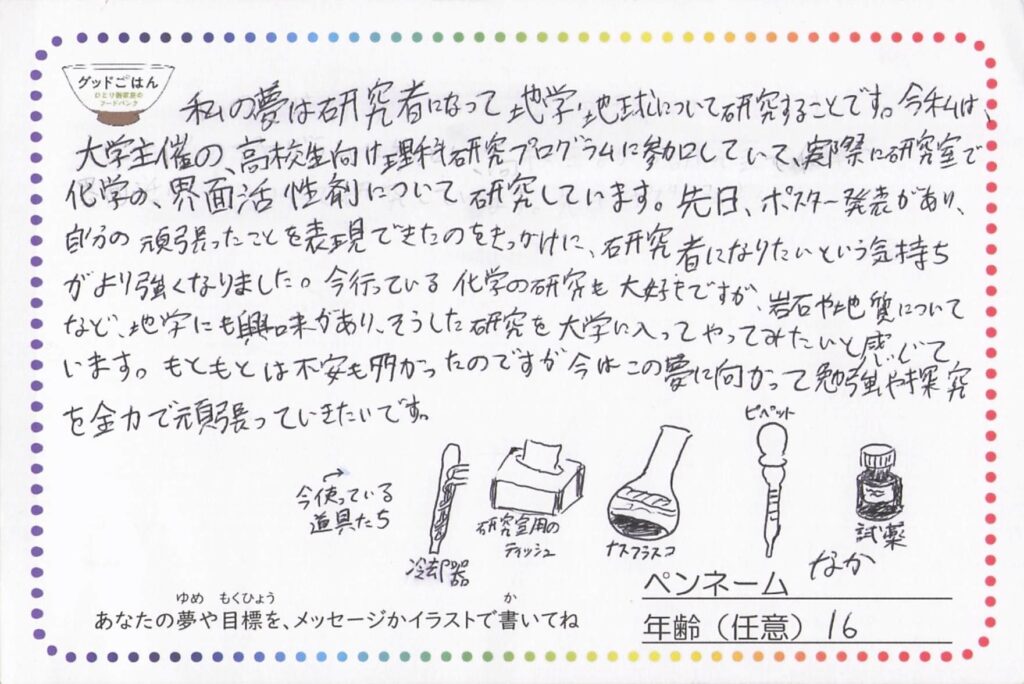 グッドごはん
ひとり親家庭の
フードバンク
私の夢は研究者になって地学・地球について研究することです。今私は、
大学主催の、高校生向け理科研究プログラムに参加していて、実際に研究室で
化学の、界面活性剤について研究しています。先日、ポスター発表があり、
自分の頑張ったことを表現できたのをきっかけに、研究者になりたいという気持ち
がより強くなりました。今行っている化学の研究も大好きですが、岩石や地質について
など、地学にも興味があり、そうした研究を大学に入ってやってみたいと感じて
います。もともとは不安も多かったのですが今はこの夢に向かって勉強や探究
を全力で頑張っていきたいです。
今使っている
道具たち
冷却器
研究室用の
ティッシュ
ナスフラスコ
ピペット
試薬
ゆめ もくひょう か
あなたの夢や目標を、メッセージかイラストで書いてね
ペンネーム なか
年齢（任意） 16